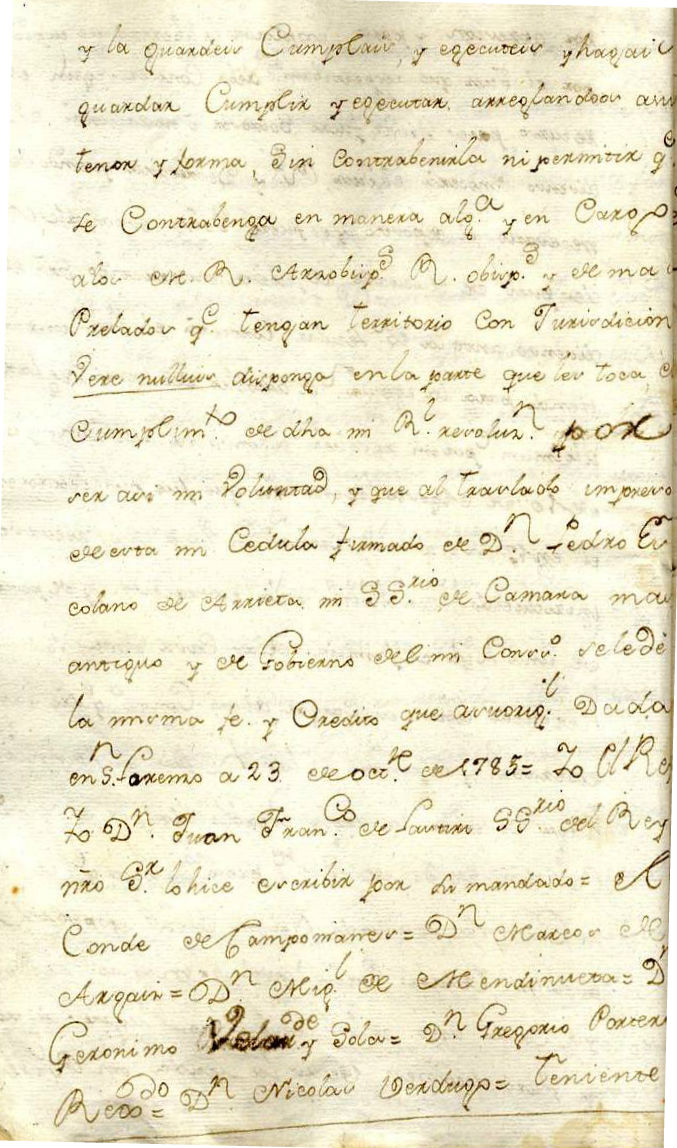 y la guardeis Cumplais, y egecuteis y hagais
guardar Cumplir y egecutar, arreglandoos asu
tenor y forma, Sin Contrabenirla ni permitir q.e
se Contrabenga en manera alg.a y en Cargo
alos M. R. Arzobisp.s R. obisp.s y demas
Prelados q.e tengan territorio Con Jurisdicion
Vere nullius disponga enla parte que les toca, el
Cumplim.to de dha mi R.l resoluz.n por
ser asi mi Voluntad, y que al traslado impreso
de esta mi Cedula firmado de D.n Pedro Es
colano de Arrieta mi SS.rio de Camara mas
antiguo y de Gobierno del mi Cons.o sele dé
la misma fe. y Credito que asu orig.l Dada
en S.n Lorenzo a 23 de oct.re de 1785= Yo El Rey
Yo D.n Juan Fran.co de Lastiri SS.rio del Rey
nrõ S.r lo hice escribir por su mandado= El
Conde de Campomanes= D.n Marcos de
Argaiz= D.n Mig.l de Mendinueta= D.n
Geronimo Velarde y Sola= D.n Gregorio Portero
Regdo= D.n Nicolas Verdugo= Teniente